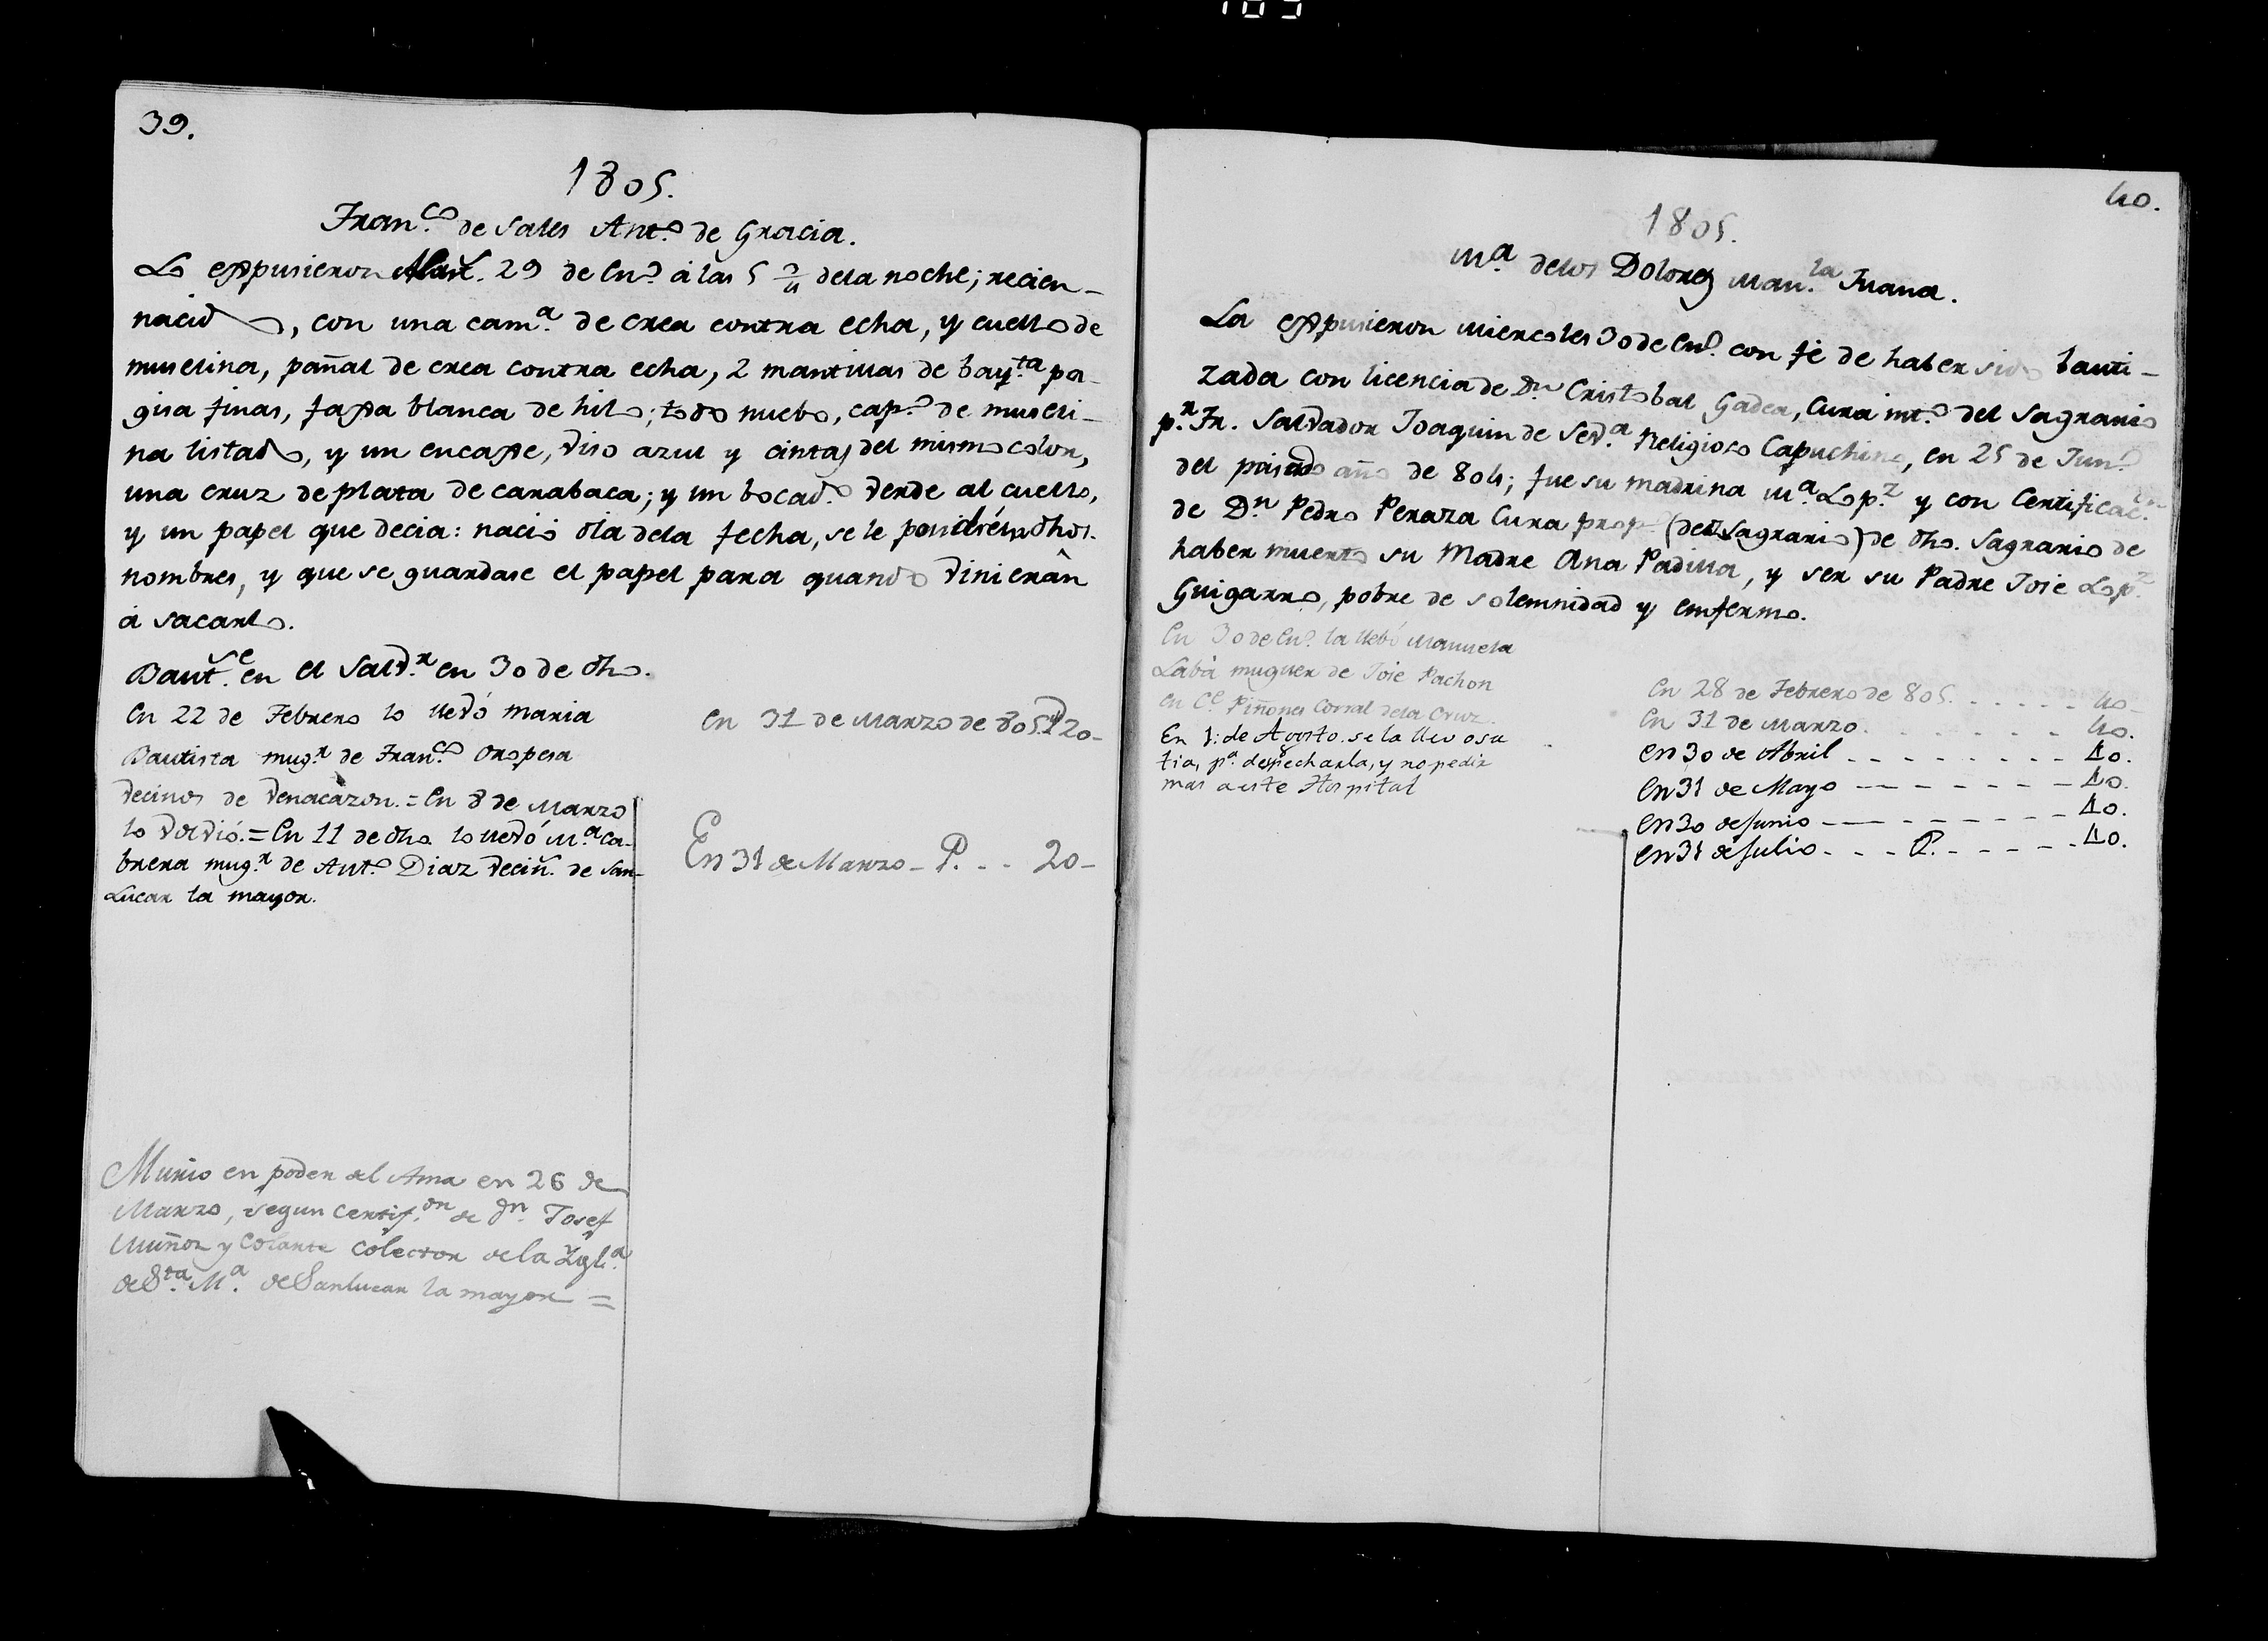 39.
1805.
Fran.co de Sales Ant.o de Gracia.
Lo expusieron Mart. 29 de En.o á las 5 3/4 dela noche; recien-
nacido, con una cam.a de crea contra echa, y cuello de
muselina, pañal de crea contra echa, 2 mantillas de bay.ta pa-
gisa finas, faxa blanca de hilo; todo nuebo, cap.o de museli-
na listado, y un encaxe, viso azul y cintas del mismo color,
una cruz de plata de carabaca; y un bocad.o verde al cuello,
y un papel que decia: nació dia dela fecha, se le pondrén dhos.
nombres, y que se guardase el papel para quando vinierân
á sacarlo.
Baut.se en el Salv.r en 30 de dho.
En 22 de Febrero lo llevó maria
Bautista mug.r de Fran.co Oropesa
vecinos de Venacazon. = En 8 de Marzo
lo volvió. = En 11 de dho. lo llevó M.a Ca-
brera mug.r de Ant.o Diaz veciñ. de San-
Lucar la mayor.
En 31 de Marzo de 805. 20-
En 31 de Marzo - P. - - 20-
Murio en poder del Ama en 26 de
Marzo, segun certif.on de Dn. Josef
Muñoz y Colante Colector de la Igl.a
de S.ta M.a de Sanlucar la mayor =
40.
1805.
M.a delos Dolores Man.la Juana.
La expusieron miercoles 30 de En.o con fé de haber sido bauti-
zada con licencia de Dn. Cristobal Gadea, Cura int.o del Sagrario
p.r Fr. Salvador Joaquin de Sev.a Religioso Capuchino, en 25 de Jun.o
del pasado año de 804; fue su madrina M.a Lop.z y con Certificac.on
de Dn. Pedro Peraza Cura prop.o (del Sagrario) de dho. Sagrario de
haber muerto su Madre Ana Padilla, y ser su Padre Jose Lop.z
Guigarro, pobre de solemnidad y enfermo.
En 30 de En.o la llebó Manuela
Labà muguer de Jose Pachon
en C.e Piñones Corral dela Cruz.
En 1: de Agosto. se la llevo su
tia, p.a despecharla, y no pedir
mas a este Hospital
En 28 de Febrero de 805. . . . . . 40-
En 31 de Marzo. . . . . . . 40.
en 30 de Abril - - - - - - - - - 40.
en 31 de Mayo - - - - - - - 40.
en 30 de Junio - - - - - - - - - 40.
en 31 de Julio - - - P. - - - - - 40.